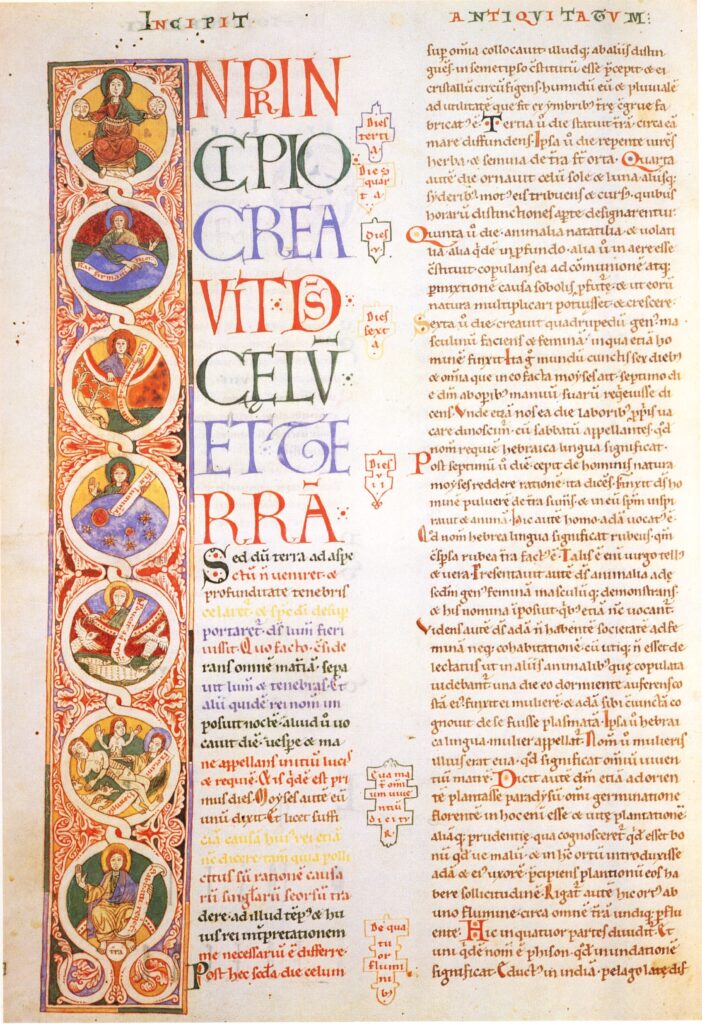 INCIPIT
ANTIQUITATUM:
N PRIN
CIPIO
CREA
VIT DS
CELŪ
ET TE
RRĀ
Sed dū terra ad aspe
ctū n̄ veniret· &
profunditate tenebris
celaret· & sps dī desup
portaret· ds lum̄ fieri
iussit· Quo facto· c̄side
rans omnē materiā· sepa
vit lum̄ & tenebras· Et
alii quidē rei nom̄ in
posuit noctē· aliud ū uo
cauit diē· uespe & ma
ne appellans initiū lucis
& requiē· & is qde est pri
mus dies· Moyses autē eū
unū dixit· Et licet suffi
ciā causā hui' rei etiā
nc̄ dicere· tam̄ quia polli
citus sū rationē causa
rū singlarū seorsū tra
dere· ad illud temp' & hu
ius rei interpretationem
me necessariū ē differre·
Post hec scda die celum
Dies
terti
a
Dies
quar
ta
Dies
v
Dies
sexta
Dies
vii
Eua ma
t omi
um uiue
ntiū
dicitr
De qua
tuor
flumini
b'
sup omīa collocauit illudq; ab aliis distin
guēs in semetipso c̄stitutū esse p̄cepit· & ei
cristallū circūfigens humidū eū & pluuialē
ad utilitatē que fit ex ymbrib' trē c̄grue fa
bricat' ē· Tertia ū die statuit trā· circa eā
mare diffundens· Ipsa ū die repente uires
herbe & semina de tra st orta· Quarta
autē die ornauit celū sole & luna aliisq;
syderib' mot' eis tribuens & curs'· quibus
horarū distinctiones apte designarentur·
Quinta ū die animalia natatilia & uolati
lia alia qdē in p̄fundo· alia ū in aere esse
c̄stituit copulans ea ad cōmunionē atq;
p̄mixtionē causa sobolis p̄ferte & ut eorū
natura multiplicari potuisset & crescere·
Sexta ū die creauit quadrupedū gen' ma
sculinū faciens & feminā· in qua etiā ho
minē finxit· Itaq mundū cunctis sex dieb'
& omīa que in eo facta moyses ait· septimo di
e dm ab opib' manuū suarū requieuisse di
cens· Unde etiā nos ea die laborib' p̄priis ua
care dinoscim' eū sabbatū appellantes· qd
nom̄ requiē hebraica lingua significat·
Post septimū ū diē cepit de hominis natura
moyses reddere rationē ita dicēs· Finxit ds ho
minē puluerē de tra sumēs· & in eū spm inspi
rauit & animā· hic autē homo adā uocat' ē·
Qd nom̄ hebrea lingua significat rubeus· qm̄
c̄spsa rubea tra fact' ē· Talis ē enī uirgo tell'
& uera· Presentauit autē ds animalia adē
scdm gen' feminā masculūq; demonstrans·
& his nomina īposuit qb' etiā nc̄ uocant·
Videns autē ds adā n̄ habentē societatē ad fe
minā neq; cohabitationē· cū utiq; n̄ esset de
lectatus ut in aliis animalib' que copulata
uidebant· una die eo dormiente auferens co
stā ei' finxit ei mulierē· & adā sibi cuncta co
gnouit de se fuisse plasmatā· Ipsa ū hebrai
ca lingua mulier appellat· Nom̄ ū mulieris
illius erat eua· qd significat omiū uiuen
tiū matrē· Dicit autē dm etiā ad orien
te plantasse paradysū omi germinatione
florentē· in hoc enī esse & uitę plantationē·
aliāq; prudentię· qua cognosceret' qd esset bo
nū qd ue malū· & in hc̄ ortū introduxisse
adā & ei' uxorē· p̄cipiens plantionū eos ha
bere sollicitudinē· Rigat' autē hic ort' ab
uno flumine· circa omnē trā undiq; p̄flu
ente· Hic in quatuor partes diuidit· Et
uni qdē nom̄ ē phison· qd inundationē
significat· Educt' in indiā pelago late dif